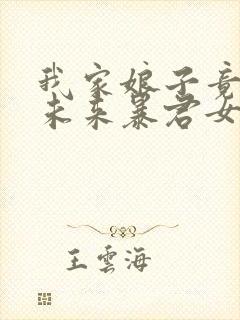 我家娘子竟
未来暴君女
王云海